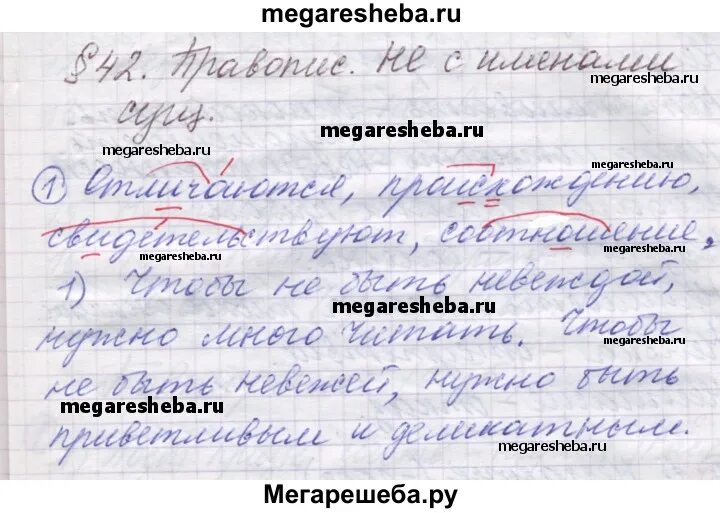 megaresheba.ru
§42. Правопис. Не с именами
megaresheba.ru
сущ.
megaresheba.ru
megaresheba.ru
megaresheba.ru
① Отличаются, происхождению,
свидетельствуют, соотношение,
megaresheba.ru
1) Чтобы не быть невеждой,
megaresheba.ru
нужно много читать. Чтобы
megaresheba.ru
не быть невежей, нужно быть
megaresheba.ru
приветливым и деликатным.
megaresheba.ru
Мегарешеба.ру